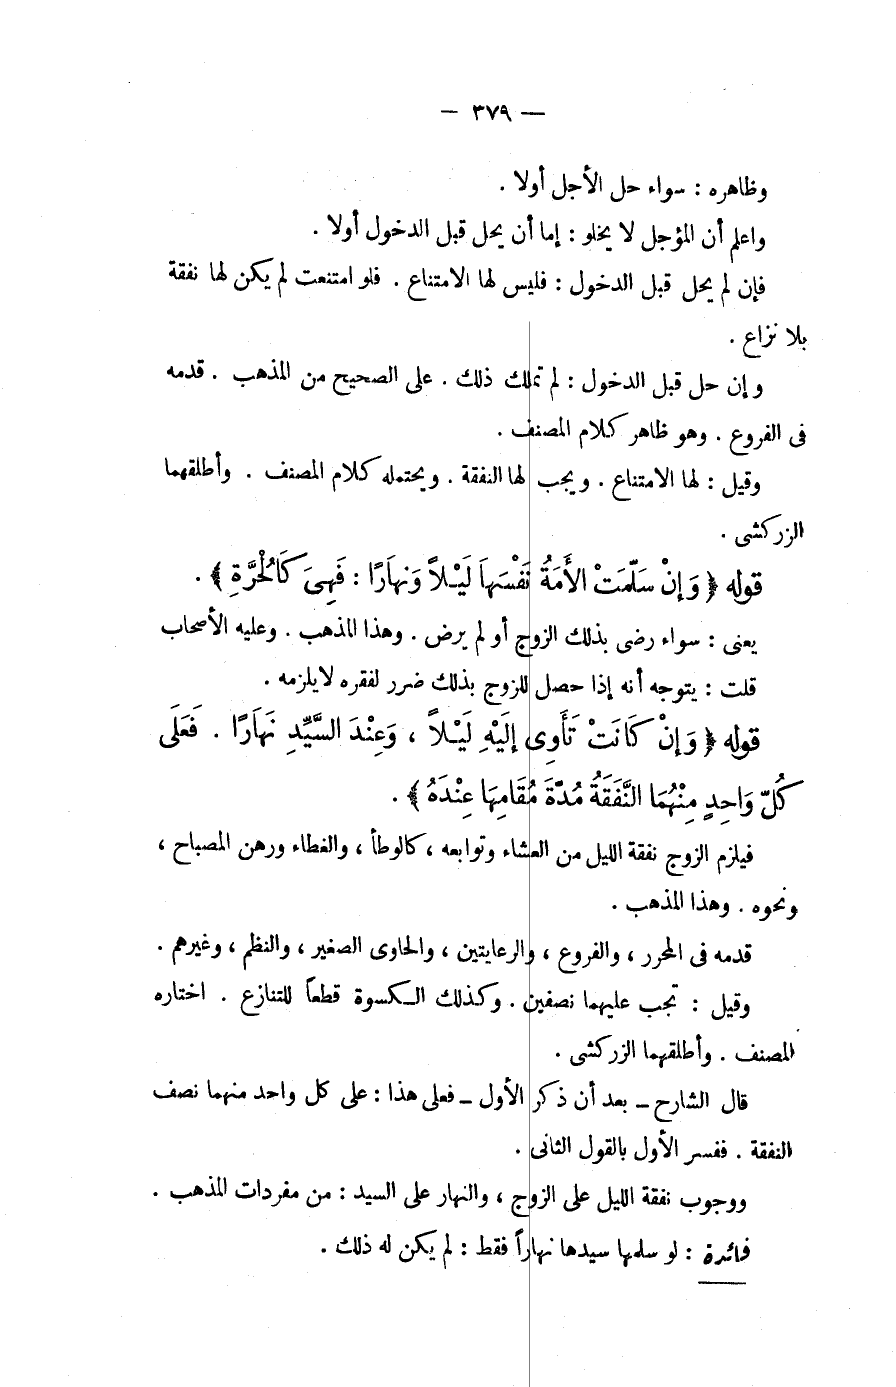 — ٣٧٩ —
وظاهره : سواء حل الأجل أولا .
واعلم أن المؤجل لا يخلو : إما أن يحل قبل الدخول أولا .
فإن لم يحل قبل الدخول : فليس لها الامتناع . فلو امتنعت لم يكن لها نفقة
بلا نزاع .
وإن حل قبل الدخول : لم تملك ذلك . على الصحيح من المذهب . قدمه
فى الفروع . وهو ظاهر كلام المصنف .
وقيل : لها الامتناع . ويجب لها النفقة . ويحتمله كلام المصنف . وأطلقهما
الزركشى .
قوله ﴿ وَإِنْ سَلَّمَتْ الأَمَةُ نَفْسَهَا لَيْلاً وَنهَارًا : فَهِىَ كَالْحُرَّةِ ﴾ .
يعنى : سواء رضى بذلك الزوج أو لم يرض . وهذا المذهب . وعليه الأصحاب
قلت : يتوجه أنه إذا حصل للزوج بذلك ضرر لفقره لايلزمه .
قوله ﴿ وَإِنْ كَانَتْ تَأْوِى إِلَيْهِ لَيْلاً ، وَعِنْدَ السَّيِّدِ نَهَارًا . فَعَلَى
كُلِّ وَاحِدٍ مِنْهُمَا النَّفَقَةُ مُدَّةَ مُقَامِهَا عِنْدَهُ ﴾ .
فيلزم الزوج نفقة الليل من العشاء وتوابعه ، كالوطأ ، والغطاء ورهن المصباح ،
ونحوه . وهذا المذهب .
قدمه فى المحرر ، والفروع ، والرعايتين ، والحاوى الصغير ، والنظم ، وغيرهم .
وقيل : تجب عليهما نصفين . وكذلك الكسوة قطعاً للتنازع . اختاره
المصنف . وأطلقهما الزركشى .
قال الشارح ــ بعد أن ذكر الأول ــ فعلى هذا : على كل واحد منهما نصف
النفقة . ففسر الأول بالقول الثانى .
ووجوب نفقة الليل على الزوج ، والنهار على السيد : من مفردات المذهب .
فائدة : لو سلمها سيدها نهاراً فقط : لم يكن له ذلك .